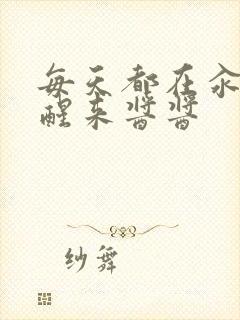 每天都在汆
醒来酱酱
纱舞